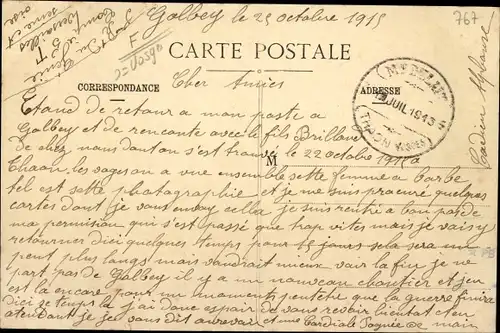 Golbey le 25 octobre 1915
767
F
CARTE POSTALE
CORRESPONDANCE
Cher Amies
ADRESSE
JUIL 1913
Etand de retour a mon poste a
Golbey et de rencontre avec le fils Brillave
de chez nous danton s'est trouvé le 22 octobre 1915 a
M
Thaon les vosges on a vue ensemble sette femme a barbe
tel est sette photographie et je me suis procuré quelques
cartes dont je vous envoy cella je suis rentré a bon pas de
ma permision qui s'est passé que trop vites mais vais je y
retourner dici quelques temps pour 15 jours sela sera un
peut plus langs mais vaudrait mieux voir la fin je ne
part pas de Golbey il y a un nouveau chantier et j'en
est la encore pour un moment peutetre que la guerre finire
dici se temps la j'ai donc espoir de vous revoir bientot et en
atendant je je vous dis aurevoir et une Cordiale Poignee de main